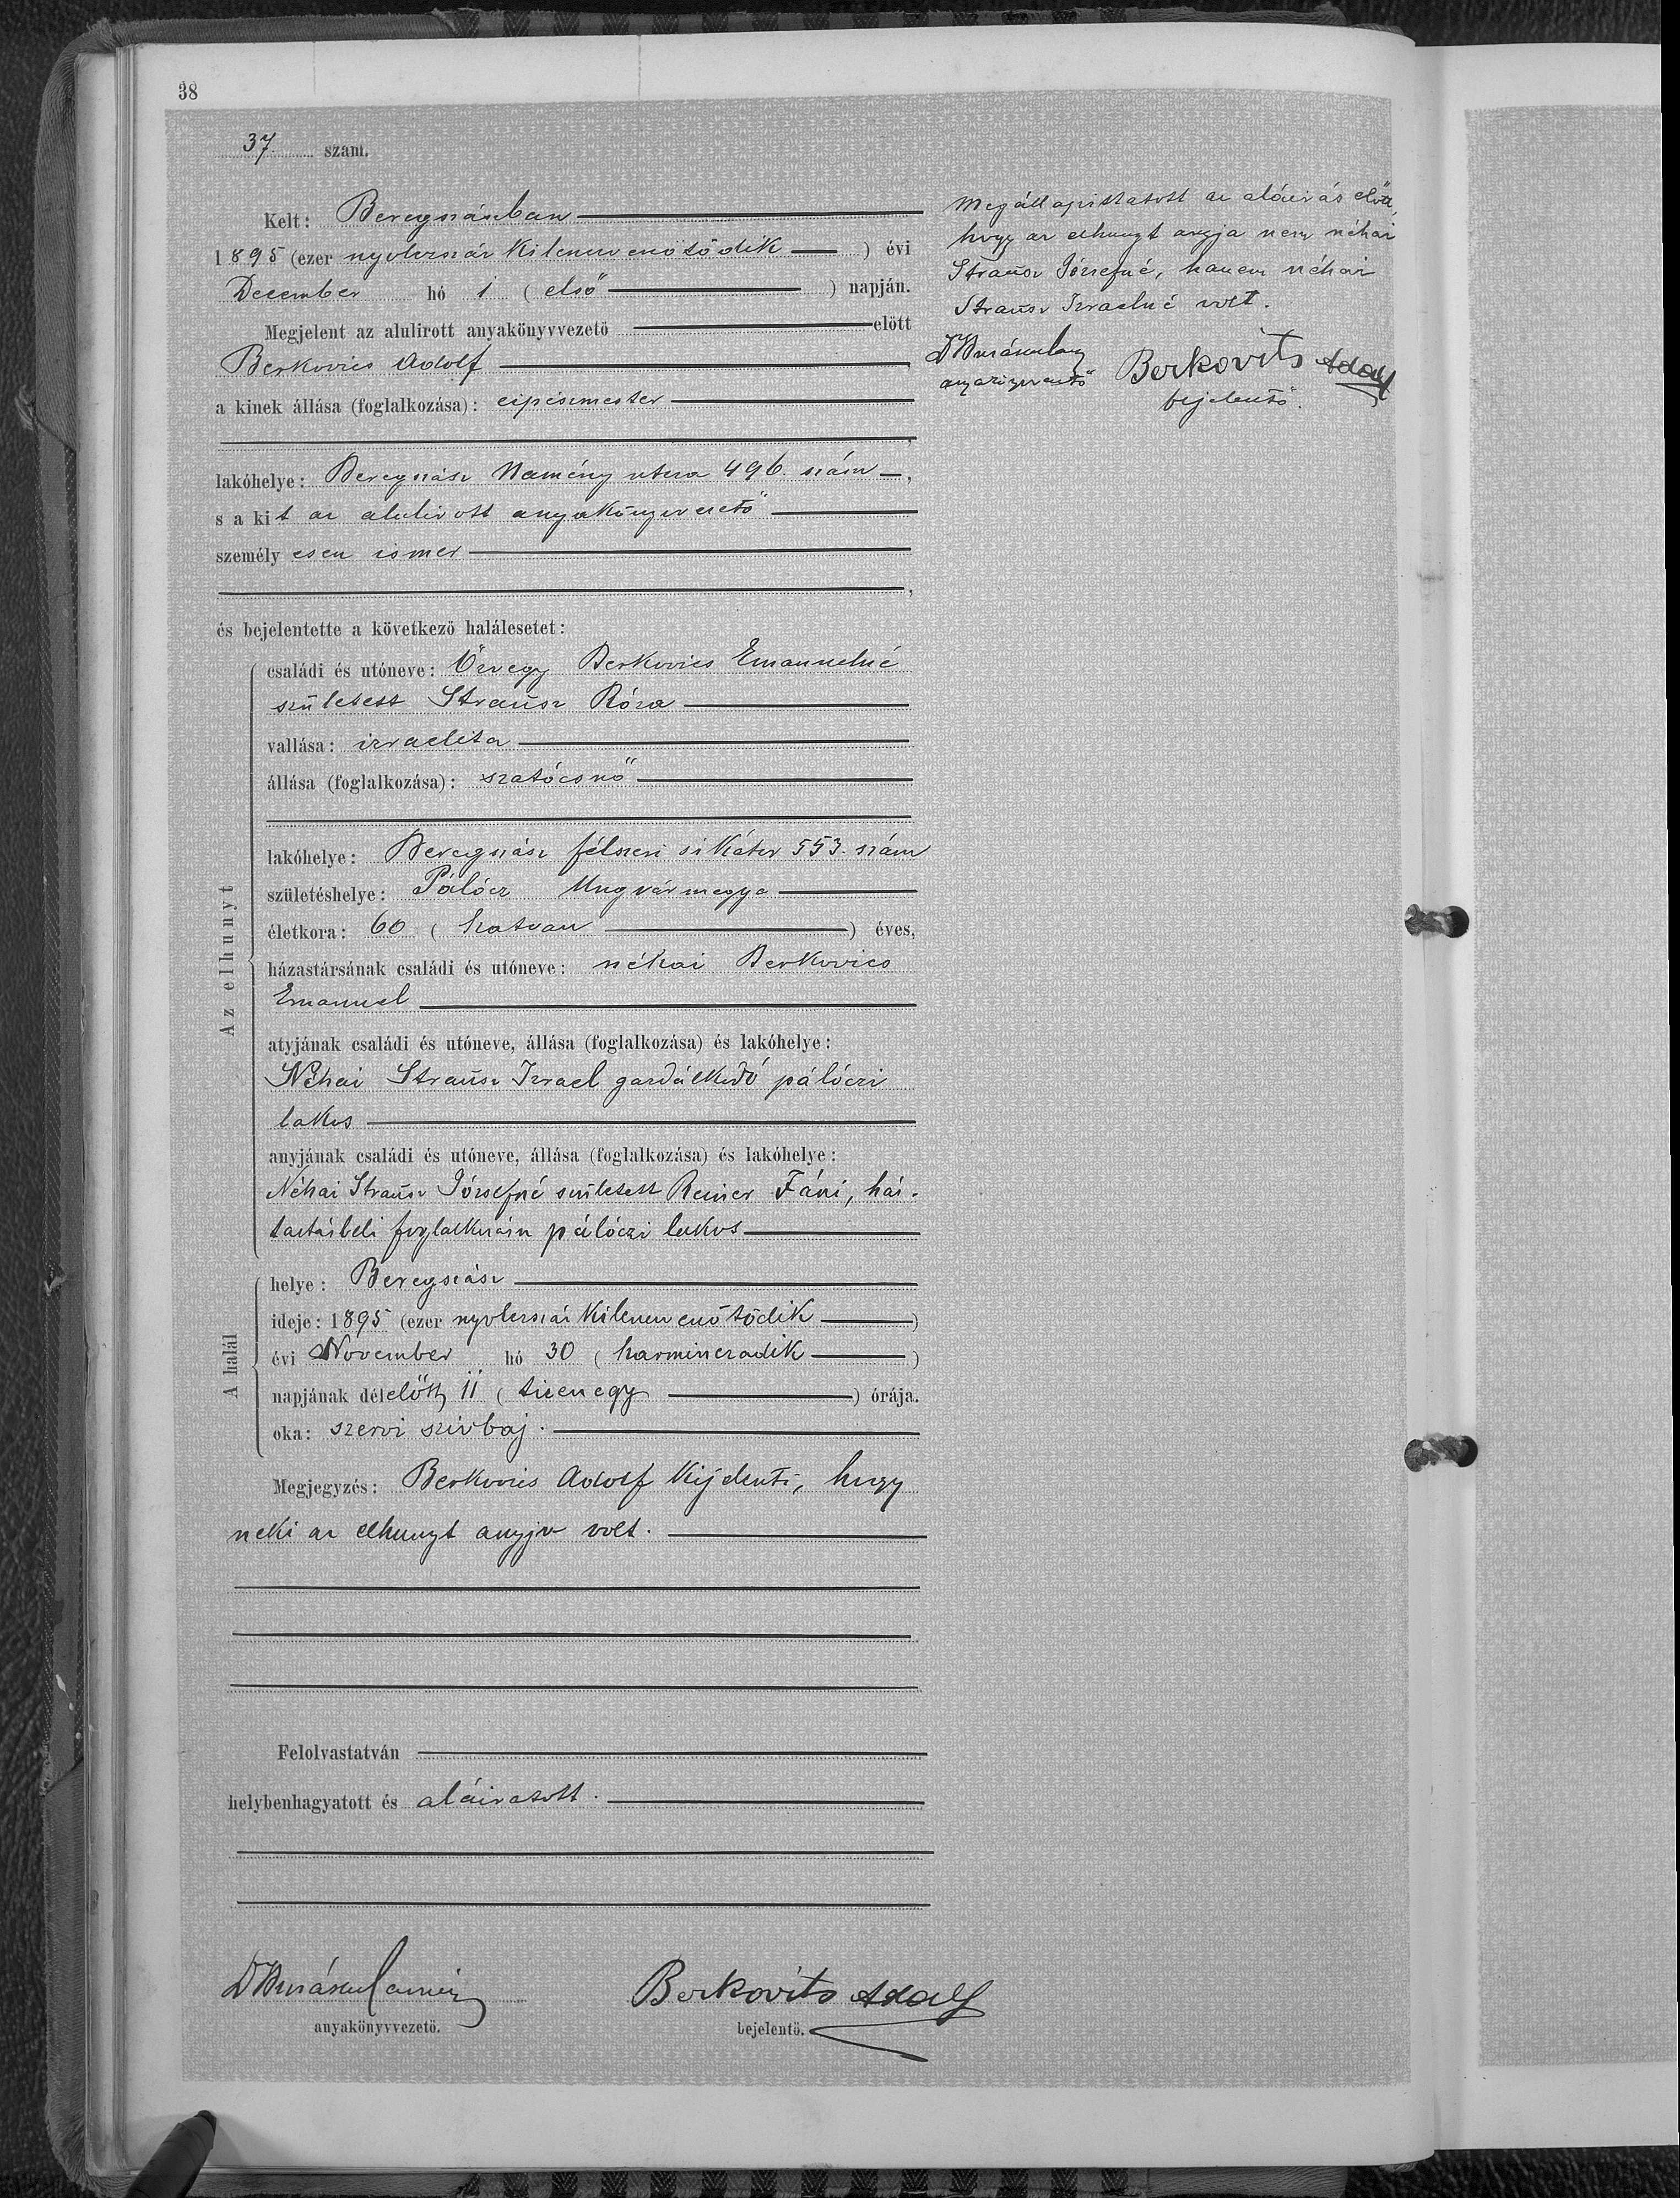 38
37. szám.
Kelt: Beregszászban
1895 (ezer nyolczszáz kilenczvenötödik ) évi
December hó 1 ( első ) napján.
Megjelent az alulirott anyakönyvvezető előtt
Berkovics Adolf ,
a kinek állása (foglalkozása): czipészmester
,
lakóhelye: Beregszász Namény utcza 496. szám ,
s a kit az alulirott anyakönyvvezető
személyesen ismer
,
és bejelentette a következő halálesetet:
Az elhunyt
családi és utóneve: Özvegy Berkovics Emanuelné
született Strausz Róza
vallása: izraelita
állása (foglalkozása): szatócsnő
lakóhelye: Beregszász félszeri sikátor 553. szám
születéshelye: Pálócz Ungvármegye
életkora: 60 ( hatvan ) éves,
házastársának családi és utóneve: néhai Berkovics
Emanuel
atyjának családi és utóneve, állása (foglalkozása) és lakóhelye:
Néhai Strausz Izrael gazdálkodó pálóczi
lakos
anyjának családi és utóneve, állása (foglalkozása) és lakóhelye:
Néhai Strausz Józsefné született Reiner Fáni, ház-
tartásbeli foglalkozásu pálóczi lakos
A halál
helye: Beregszász
ideje: 1895 (ezer nyolczszáz kilenczvenötödik )
évi November hó 30 ( harminczadik )
napjának délelőtt 11 ( tizenegy ) órája.
oka: szervi szivbaj.
Megjegyzés: Berkovics Adolf kijelenti, hogy
neki az elhunyt anyja volt.
Felolvastatván
helybenhagyatott és aláiratott.
anyakönyvvezető.
Berkovits Adolf
bejelentő.
Megállapittatott az aláirás előtt,
hogy az elhunyt anyja nem néhai
Strausz Józsefné, hanem néhai
Strausz Izraelné volt.
anyakönyvvezető
Berkovits Adolf
bejelentő.